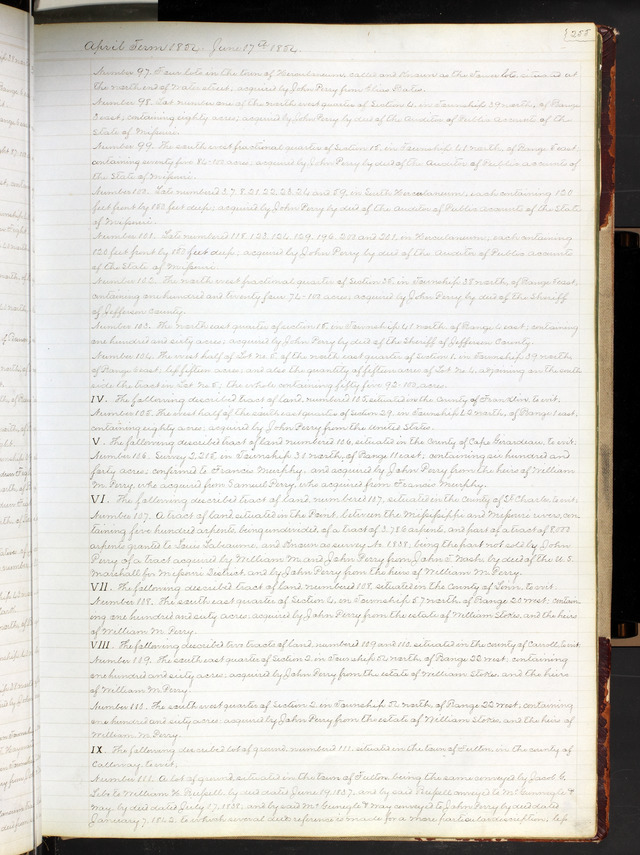 255
April Term 1852. June 17th 1852.
Number 97. Four lots in the town of Herculaneum, called and known as the Tower lots, situated at
the north end of Water street; acquired by John Perry from Elias Bates.
Number 98. Lot number one of the north west quarter of Section 4, in Township 39 north, of Range
east, containing eighty acres; acquired by John Perry by deed of the Auditor of Public Accounts of the
State of Missouri.
Number 99. The south west fractional quarter of Section 15, in Township 41 north, of Range 5 east,
containing seventy five 86-100 acres; acquired by John Perry by deed of the Auditor of Public accounts of
the State of Missouri.
Number 100. Lots numbered 3, 7, 8, 21, 22, 23, 24 and 59, in South Herculaneum, each containing 120
feet front by 182 feet deep; acquired by John Perry by deed of the Auditor of Public accounts of the State
of Missouri.
Number 101. Lots numbered 118, 123, 124, 129, 196, 200 and 201, in Herculaneum, each containing
120 feet front by 182 feet deep; acquired by John Perry by deed of the Auditor of Public accounts
of the State of Missouri.
Number 102. The north west fractional quarter of Section 35, in Township 38 north, of Range 5 east,
containing one hundred and twenty four 74-100 acres; acquired by John Perry by deed of the Sheriff
of Jefferson County.
Number 103. The north east quarter of section 15, in Township 41 north, of Range 4 east; containing
one hundred and sixty acres; acquired by John Perry by deed of the Sheriff of Jefferson County.
Number 104. The west half of Lot No 5, of the north east quarter of section 1, in Township 39 north
of Range 5 east; less fifteen acres; and also the quantity of fifteen acres of Lot No 4, adjoining on the south
side the tract on Lot No 5; the whole containing fifty five 92-100 acres.
IV. The following described tract of land, numbered 105, situated in the County of Franklin, to wit:
Number 105. The west half of the south east quarter of section 29, in Township 40 north, of Range 1 east,
containing eighty acres; acquired by John Perry from the United States.
V. The following described tract of land numbered 106, situated in the County of Cape Girardeau, to wit:
Number 106. Survey 2,215, in Township 31 north, of Range 11 east; containing six hundred and
forty acres; confirmed to Francis Murphy, and acquired by John Perry from the heirs of William
M. Perry, who acquired from Samuel Perry, who acquired from Francis Murphy.
VI. The following described tract of land, numbered 107, situated in the County of St Charles, to wit:
Number 107. A tract of land situated in the Point, between the Mississippi and Missouri rivers, con-
taining five hundred arpents, being undivided, of a tract of 3,786 arpents, and part of a tract of 8,000
arpents granted to Louis Labeaume, and known as survey No 1,838, being the part not sold by John
Perry of a tract acquired by William M. and John Perry, from John S. Nash, by deed of the U. S.
Marshall for Missouri District, and by John Perry from the heirs of William M. Perry.
VII. The following described tract of land, numbered 108, situated in the County of Linn, to wit:
Number 108. The south east quarter of Section 2, in Township 57 north, of Range 20 west; contain-
ing one hundred and sixty acres; acquired by John Perry from the estate of William Stokes, and the heirs
of William M. Perry.
VIII. The following described two tracts of land, numbered 109 and 110, situated in the county of Carroll, to wit:
Number 109. The south east quarter of Section 2, in Township 52 north, of Range 22 west; containing
one hundred and sixty acres; acquired by John Perry from the estate of William Stokes, and the heirs
of William M. Perry.
Number 110. The south west quarter of Section 2, in Township 52 north, of Range 22 west, containing
one hundred and sixty acres; acquired by John Perry from the estate of William Stokes and the heirs of
William M. Perry.
IX. The following described lot of ground, numbered 111, situated in the town of Fulton, in the county of
Calloway, to wit:
Number 111. A lot of ground, situated in the town of Fulton, being the same conveyed by Jacob G.
to William H. Russell, by deed dated June 19, 1837, and by said Russell conveyed to &
May, by deed dated July 17, 1838, and by said & May conveyed to John Perry by deed dated
January 7, 1842, to which several deeds reference is made for a more particular description; less